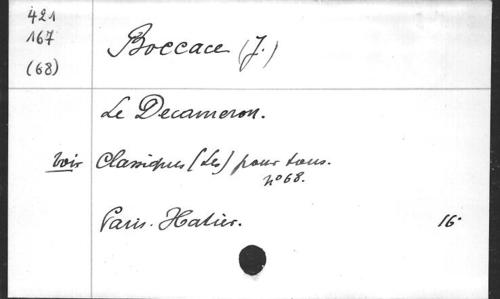 421
167
(68)
Boccace (J.)
Le Decameron.
voir Classiques (Les) pour tous.
nº 68.
Paris. Hatier. 16º